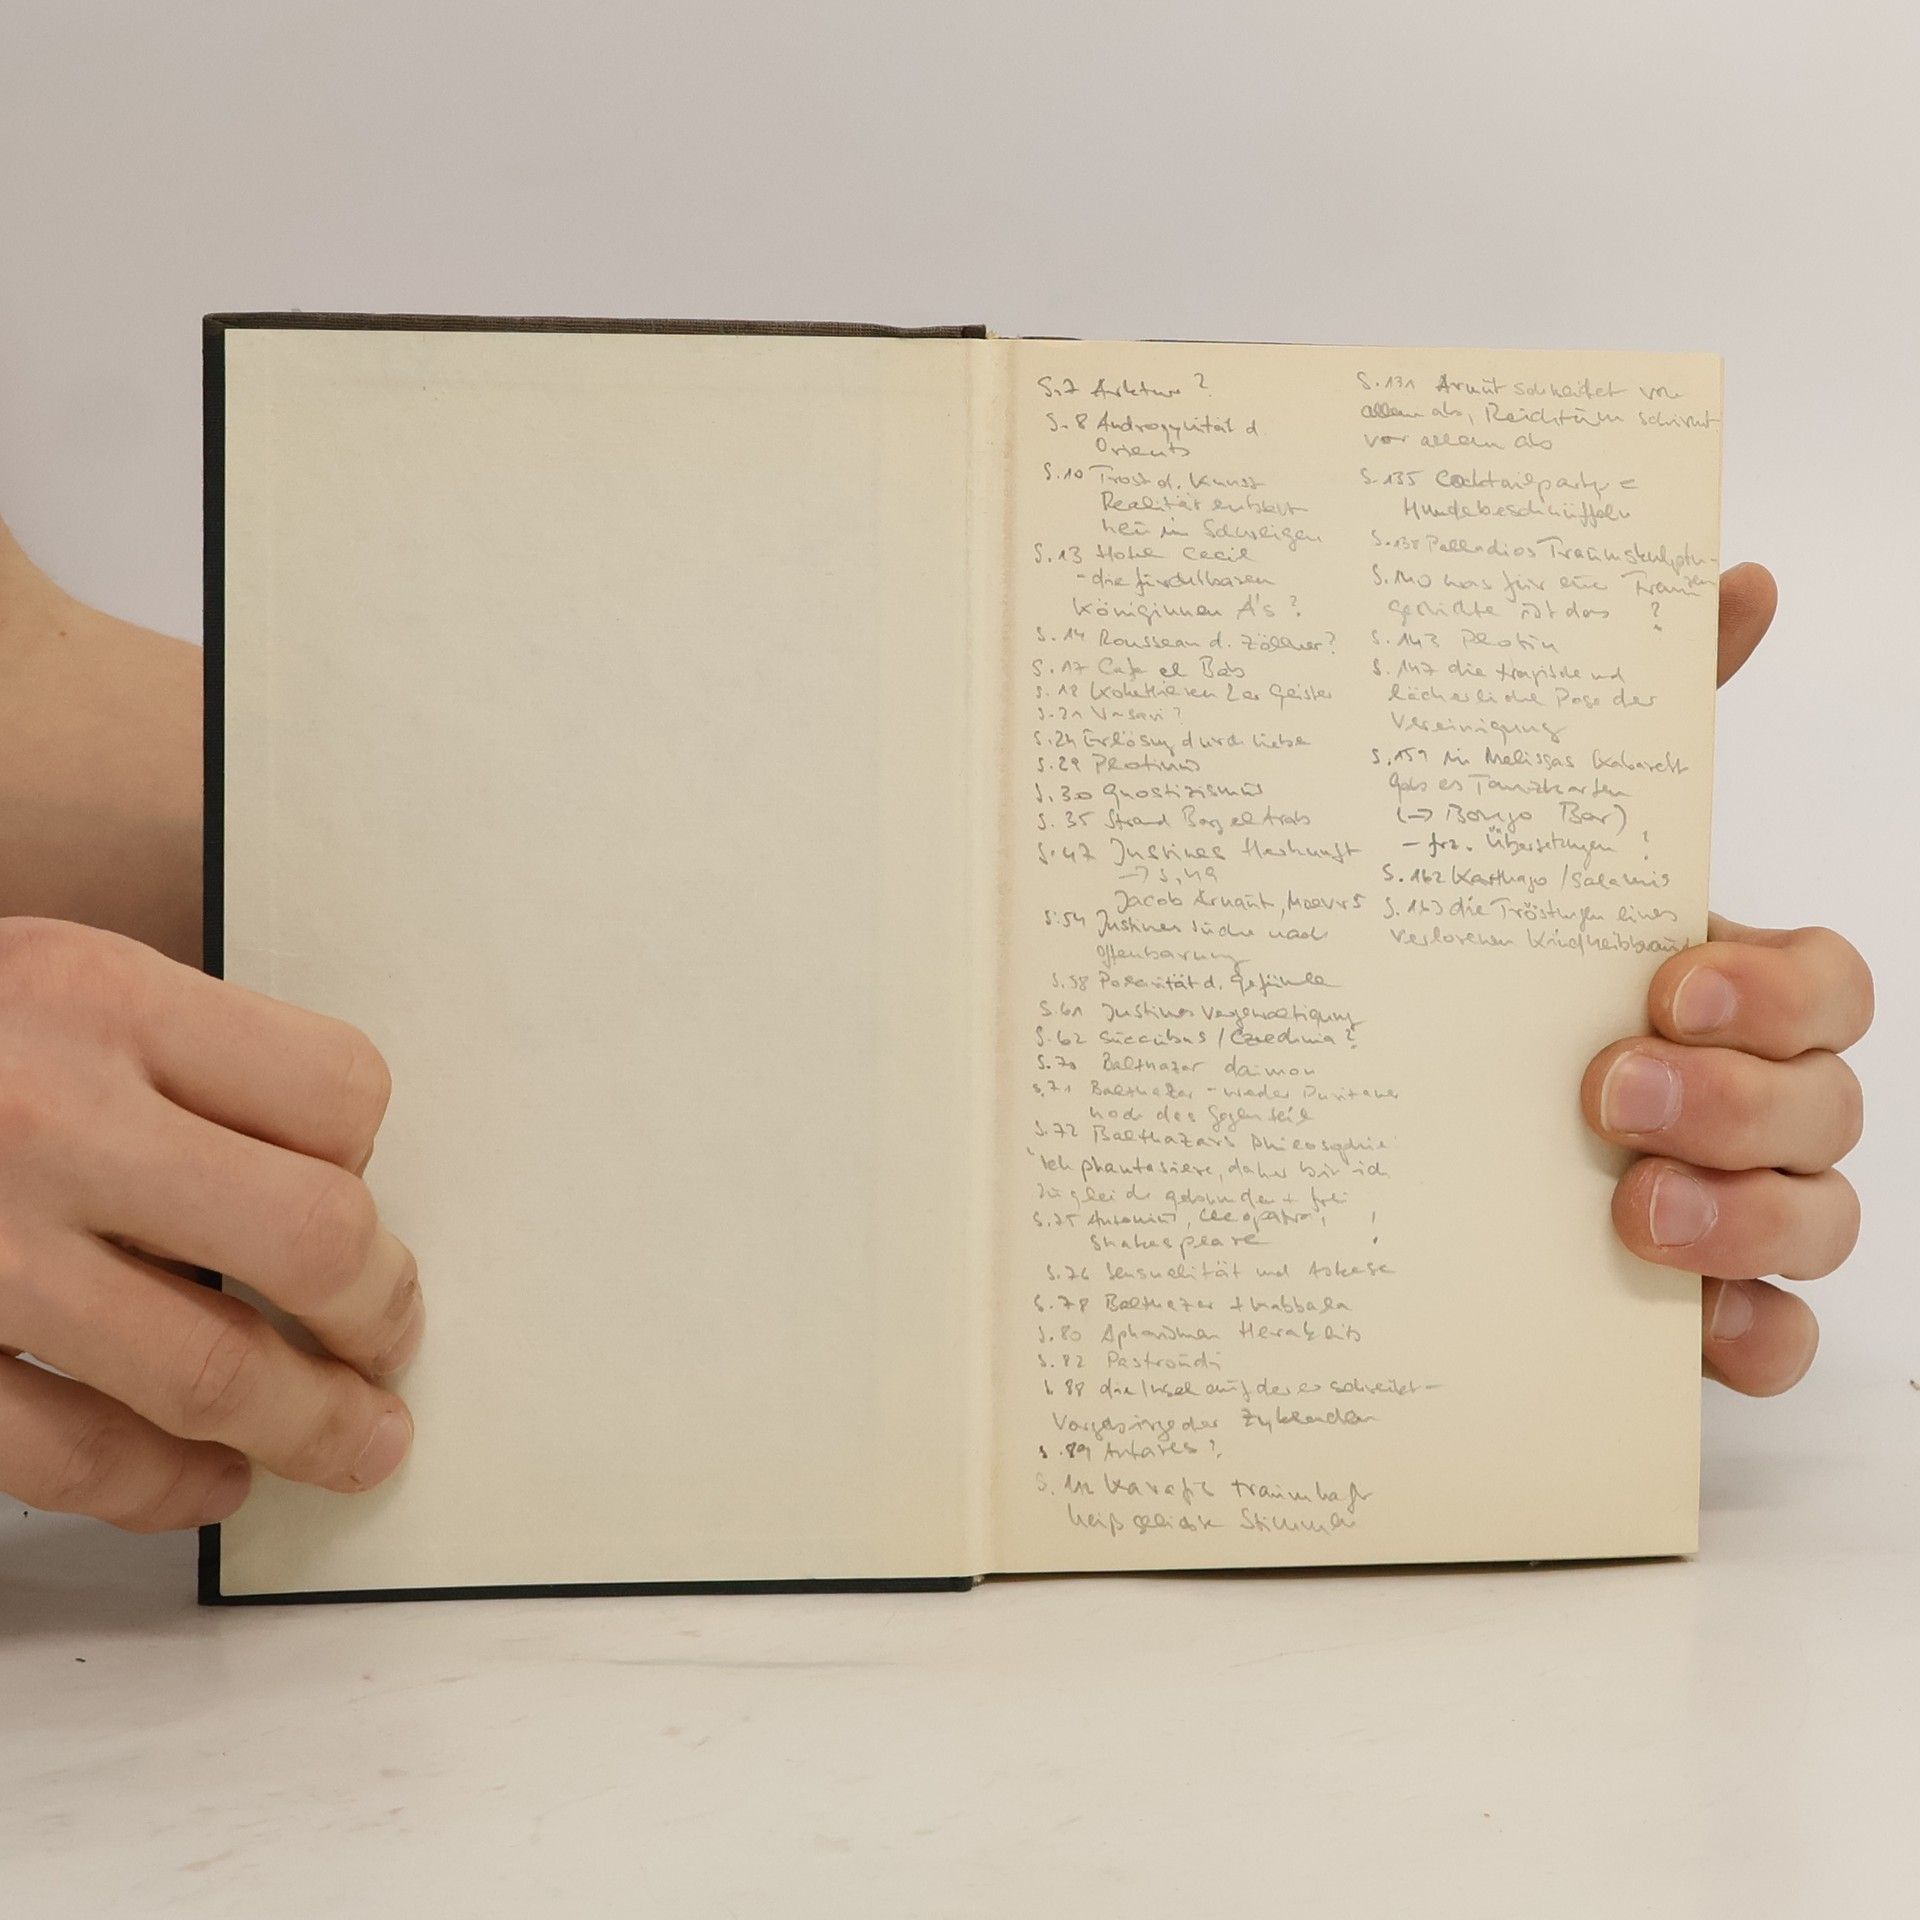 S.7 Arktur ?
S. 8 Androgynität d.
Orients
S.10 Trost d. Kunst
Realität entsteht
neu im Schweigen
S.13 Hotel Cecil
- die furchtbaren
Königinnen A's ?
S. 14 Rousseau d. Zöllner?
S. 17 Cafe el Bab
S. 18 Kokettieren der Geister
S. 21 Vasari ?
S.24 Erlösung durch Liebe
S. 29 Plotinus
S. 30 Gnostizismus
S. 35 Strand Borg el Arab
S. 47 Justines Herkunft
-> S. 49
Jacob Arnauti, Moeurs
S.54 Justines Suche nach
Offenbarung
S.58 Polarität d. Gefühle
S.61 Justines Vergewaltigung
S. 62 Succubus / ?
S. 70 Balthazar daimon
S.71 Balthazar - weder Puritaner
noch das Gegenteil
S.72 Balthazars Philosophie
"Ich phantasiere, daher bin ich
zugleich gebunden + frei
S.75 Antonius, Cleopatra, !
Shakespeare
S.76 Sensualität und Askese
S. 78 Balthazar + Kabbala
S. 80 Aphorismen Heraklits
S. 82 Pastroudi
S. 88 die Insel auf der er schreibt -
Vorgebirge der Zykladen
S. 89 Antares ?
S. Kavafis traumhaft
heiß geliebte Stimmen
S. 131 Armut schneidet von
allem ab, Reichtum schirmt
vor allem ab
S. 135 Cocktailparty =
Hundebeschnüffeln
S. 138 Palladios Traumskulptu-
S. 140 was für eine Frauen
geschichte ist das ?
S. 143 Plotin
S. 147 die tragische und
lächerliche Pose der
Vereinigung
S. 159 in Melissas Kabarett
gab es Tanzkarten
(-> Bongo Bar)
- frz. Übersetzungen !
S. 162 Karthago / Salamis
S. 163 die Tröstungen eines
verlorenen Kindheitsbaums